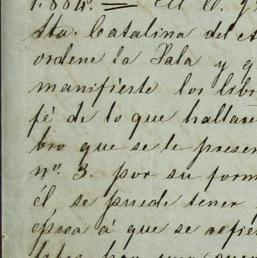 1.864. = El C. J
Sta. Catalina del
ordene la Sala y q
manifieste los libr
fé de lo que hallare
bro que se le presen
nº. 3. por su form
él se puede tener
época á que se refie